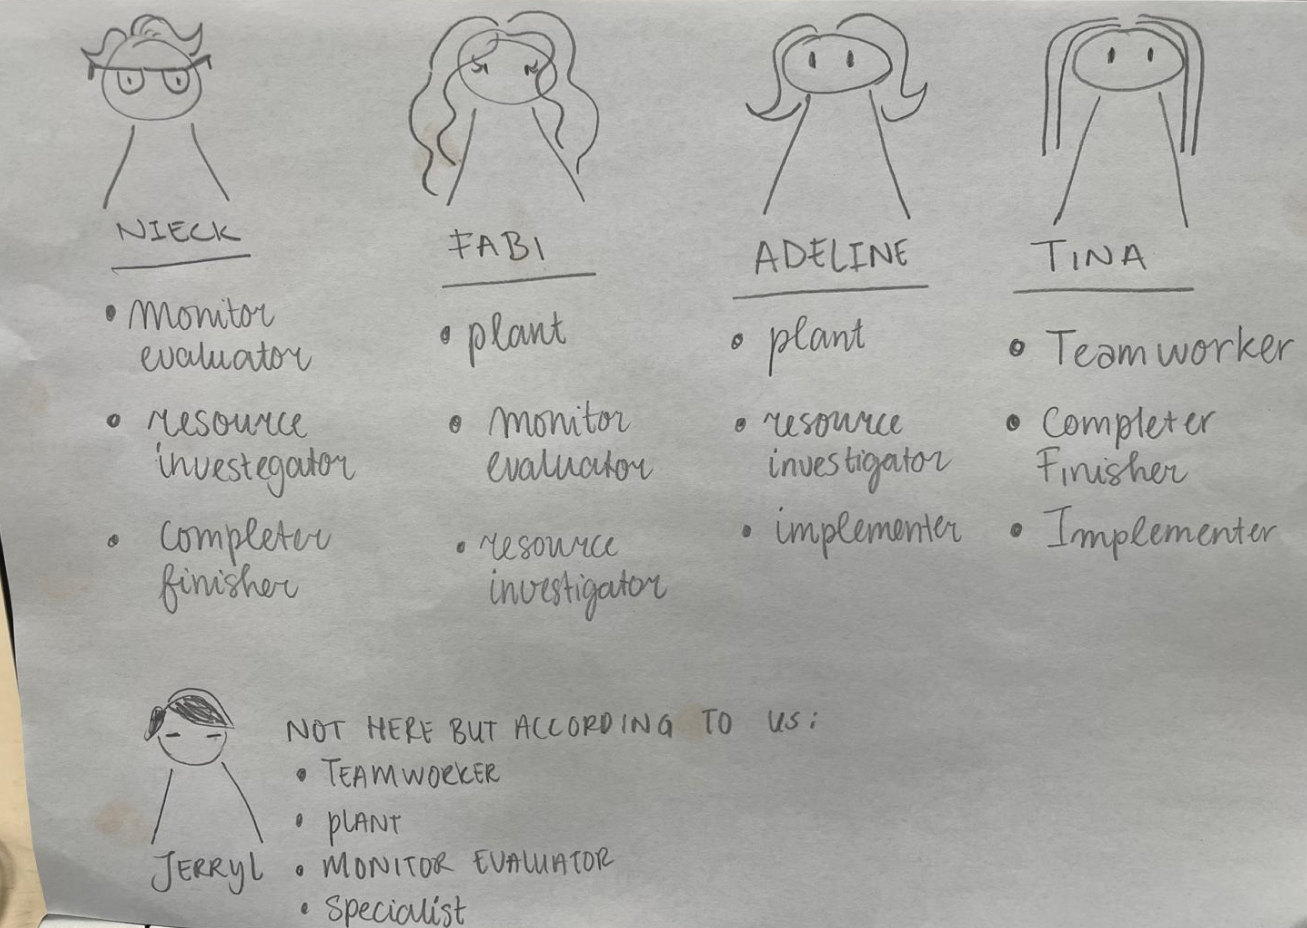 NIECK
• Monitor
evaluator
• resource
investegator
• completer
finisher
FABI
• plant
• monitor
evaluator
• resource
investigator
ADELINE
• plant
• resource
investigator
• implementer
TINA
• Teamworker
• Completer
Finisher
• Implementer
JERRYL
NOT HERE BUT ACCORDING TO US:
• TEAMWORKER
• PLANT
• MONITOR EVALUATOR
• Specialist